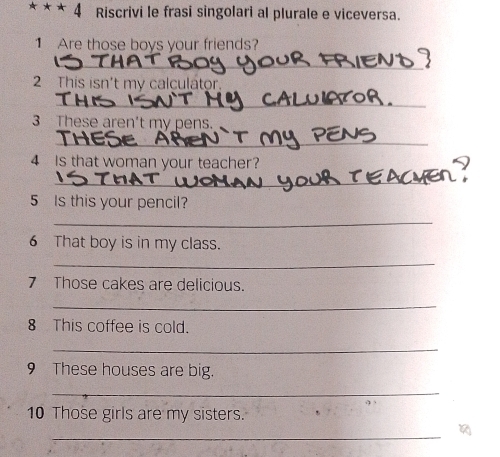 ★ ★ ★ 4 Riscrivi le frasi singolari al plurale e viceversa.
1 Are those boys your friends?
IS THAT BOY YOUR FRIEND?
2 This isn't my calculator.
THIS ISN'T MY CALULATOR.
3 These aren't my pens.
THESE AREN'T MY PENS
4 Is that woman your teacher?
IS THAT WOMAN YOUR TEACHER?
5 Is this your pencil?
6 That boy is in my class.
7 Those cakes are delicious.
8 This coffee is cold.
9 These houses are big.
10 Those girls are my sisters.